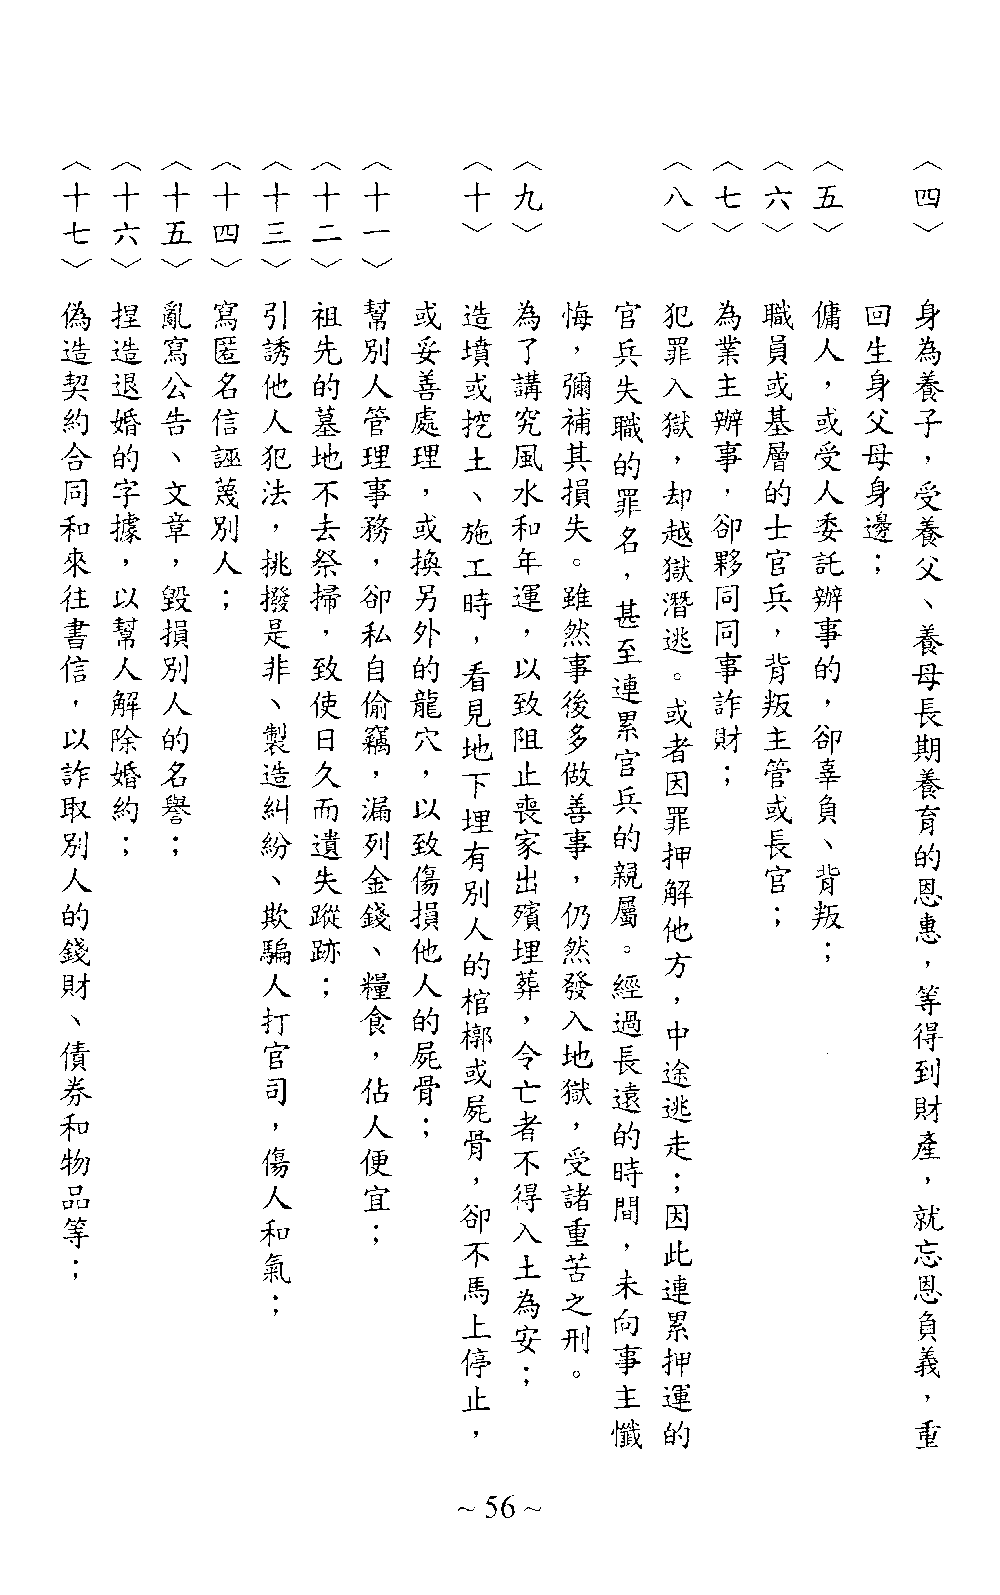 〈四〉 身為養子，受養父、養母長期養育的恩惠，等得到財產，就忘恩負義，重
回生身父母身邊；
〈五〉 傭人，或受人委託辦事的，卻辜負、背叛；
〈六〉 職員或基層的士官兵，背叛主管或長官；
〈七〉 為業主辦事，卻夥同同事詐財；
〈八〉 犯罪入獄，却越獄潛逃。或者因罪押解他方，中途逃走；因此連累押運的
官兵失職的罪名，甚至連累官兵的親屬。經過長遠的時間，未向事主懺
悔，彌補其損失。雖然事後多做善事，仍然發入地獄，受諸重苦之刑。
〈九〉 為了講究風水和年運，以致阻止喪家出殯埋葬，令亡者不得入土為安；
〈十〉 造墳或挖土、施工時，看見地下埋有別人的棺槨或屍骨，卻不馬上停止，
或妥善處理，或換另外的龍穴，以致傷損他人的屍骨；
〈十一〉 幫別人管理事務，卻私自偷竊，漏列金錢、糧食，佔人便宜；
〈十二〉 祖先的墓地不去祭掃，致使日久而遺失蹤跡；
〈十三〉 引誘他人犯法，挑撥是非、製造糾紛、欺騙人打官司，傷人和氣；
〈十四〉 寫匿名信誣蔑別人；
〈十五〉 亂寫公告、文章，毀損別人的名譽；
〈十六〉 捏造退婚的字據，以幫人解除婚約；
〈十七〉 偽造契約合同和來往書信，以詐取別人的錢財、債券和物品等；
~ 56 ~